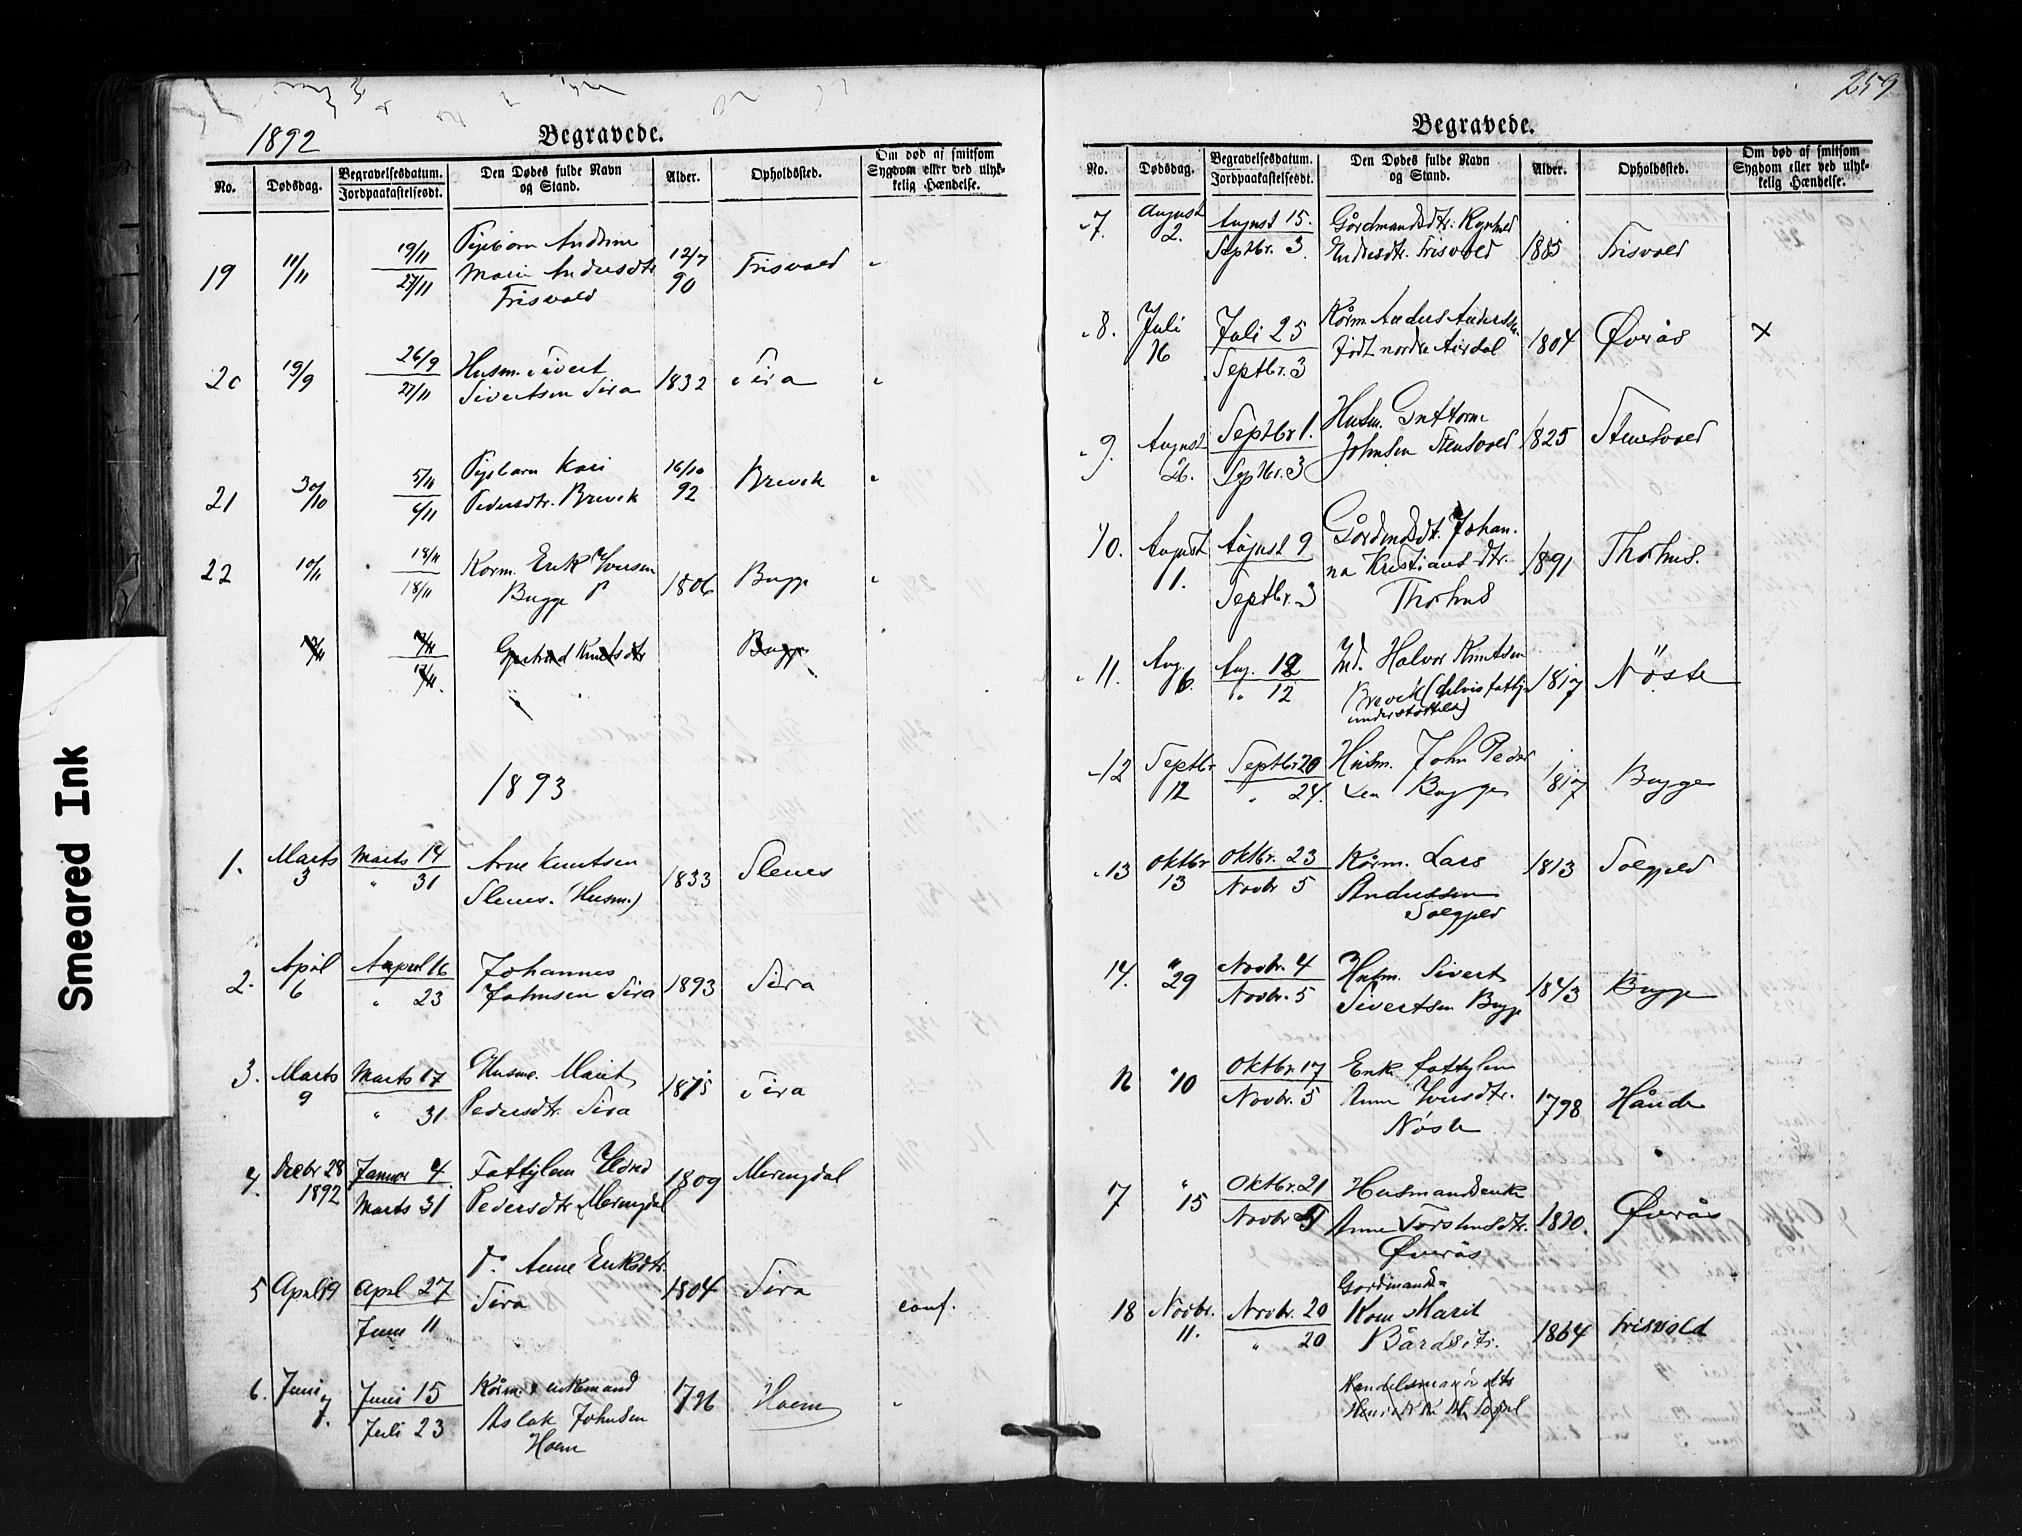 259
1892
Begravede.
No.
Dødsdag.
Begravelsesdatum.
Jordpaakastelsesdt.
Den Dødes fulde Navn
og Stand.
Alder.
Opholdssted.
Om død af smitsom
Sygdom eller ved ulyk-
kelig Hændelse.
19
11/11
19/11
27/11
Pigebarn Andrine
Marie Andersdtr
Trisvold
12/7
90
Trisvold
20
19/9
26/9
27/11
Husm. Sivert
Sivertsen Sira
1832
Sira
21
30/10
5/11
6/11
Pigebarn Kari
Pedersdtr. Brevik
16/10
92
Brevik
22
10/11
18/11
18/11
Korm. Erik Iversen
Bugge
1806
Bugge
Gjertrud Knutsdtr
Bugge
1893
1.
Marts
3
Marts 14
" 31
Arne Knutsen
Slenes. (Husm.)
1833
Slenes
2.
April
6
April 16
" 23
Johannes
Johnsen Sira
1893
Sira
3.
Marts
9
Marts 17
" 31
Husm. Marit
Pedersdtr. Sira
1815
Sira
4.
Decbr 28
1892
Januar 4.
Marts 31
Fattiglem Ildrid
Pedersdtr Meringdal
1809
Meringdal
5
April 19
April 27
Juni 11
Anne Eriksdtr.
Sira
1804
Sira
conf.
6.
Juni
7.
Juni 15
Juli 23
Kårm. & enkemand
Aslak Johnsen
Hoem
1796
Hoem
Begravede.
No.
Dødsdag.
Begravelsesdatum.
Jordpaakastelsesdt.
Den Dødes fulde Navn
og Stand.
Alder.
Opholdssted.
Om død af smitsom
Sygdom eller ved ulyk-
kelig Hændelse.
7.
August
2.
August 15.
Septbr. 3.
Gårdmandsdtr. Ragnhild
Endresdtr. Trisvold
1885
Trisvold
8.
Juli
16
Juli 25
Septbr. 3
Kårm Anders Andersen
født nordre Airdal
1804
Øverås
x
9.
August
26.
Septbr 1.
Septbr. 3
Husm. Guttorm
Johnsen Stensvold
1825
Stensvold
10.
August
1.
August 9
Septbr. 3
Gårdmdsdt. Johan-
na Kristiansdtr.
Thorhus
1891
Thorhus.
11.
Aug.
6.
Aug. 12
" 12
Ind. Halvor Knutsen
Brevik (delvis fattig-
understøttet)
1817
Nöste
12
Septbr
12
Septbr 20
" 24.
Husm. John Peder
sen Bugge
1817
Bugge
13
Oktbr
13
Oktbr. 23
Novbr 5
Kårm. Lars
Anderssen
Solgjeld
1813
Solgjeld
14.
" 29
Novbr. 4
Novbr. 5
Husm. Sivert
Sivertsen Bugge
1843
Bugge
" 10
Oktbr. 17
Novbr. 5
Enk. fattiglem
Anne Iversdtr.
Nöste
1798
Hånde
" 15
Oktbr. 21
Novbr. 5
Husmandsenke
Anne Torstensdtr.
Øverås
1820.
Øverås
18
Novbr.
11.
Novbr. 20
" 20
Gardmands-
Kone Marit
Bårdsdtr.
1864
Trisvold
Smeared Ink